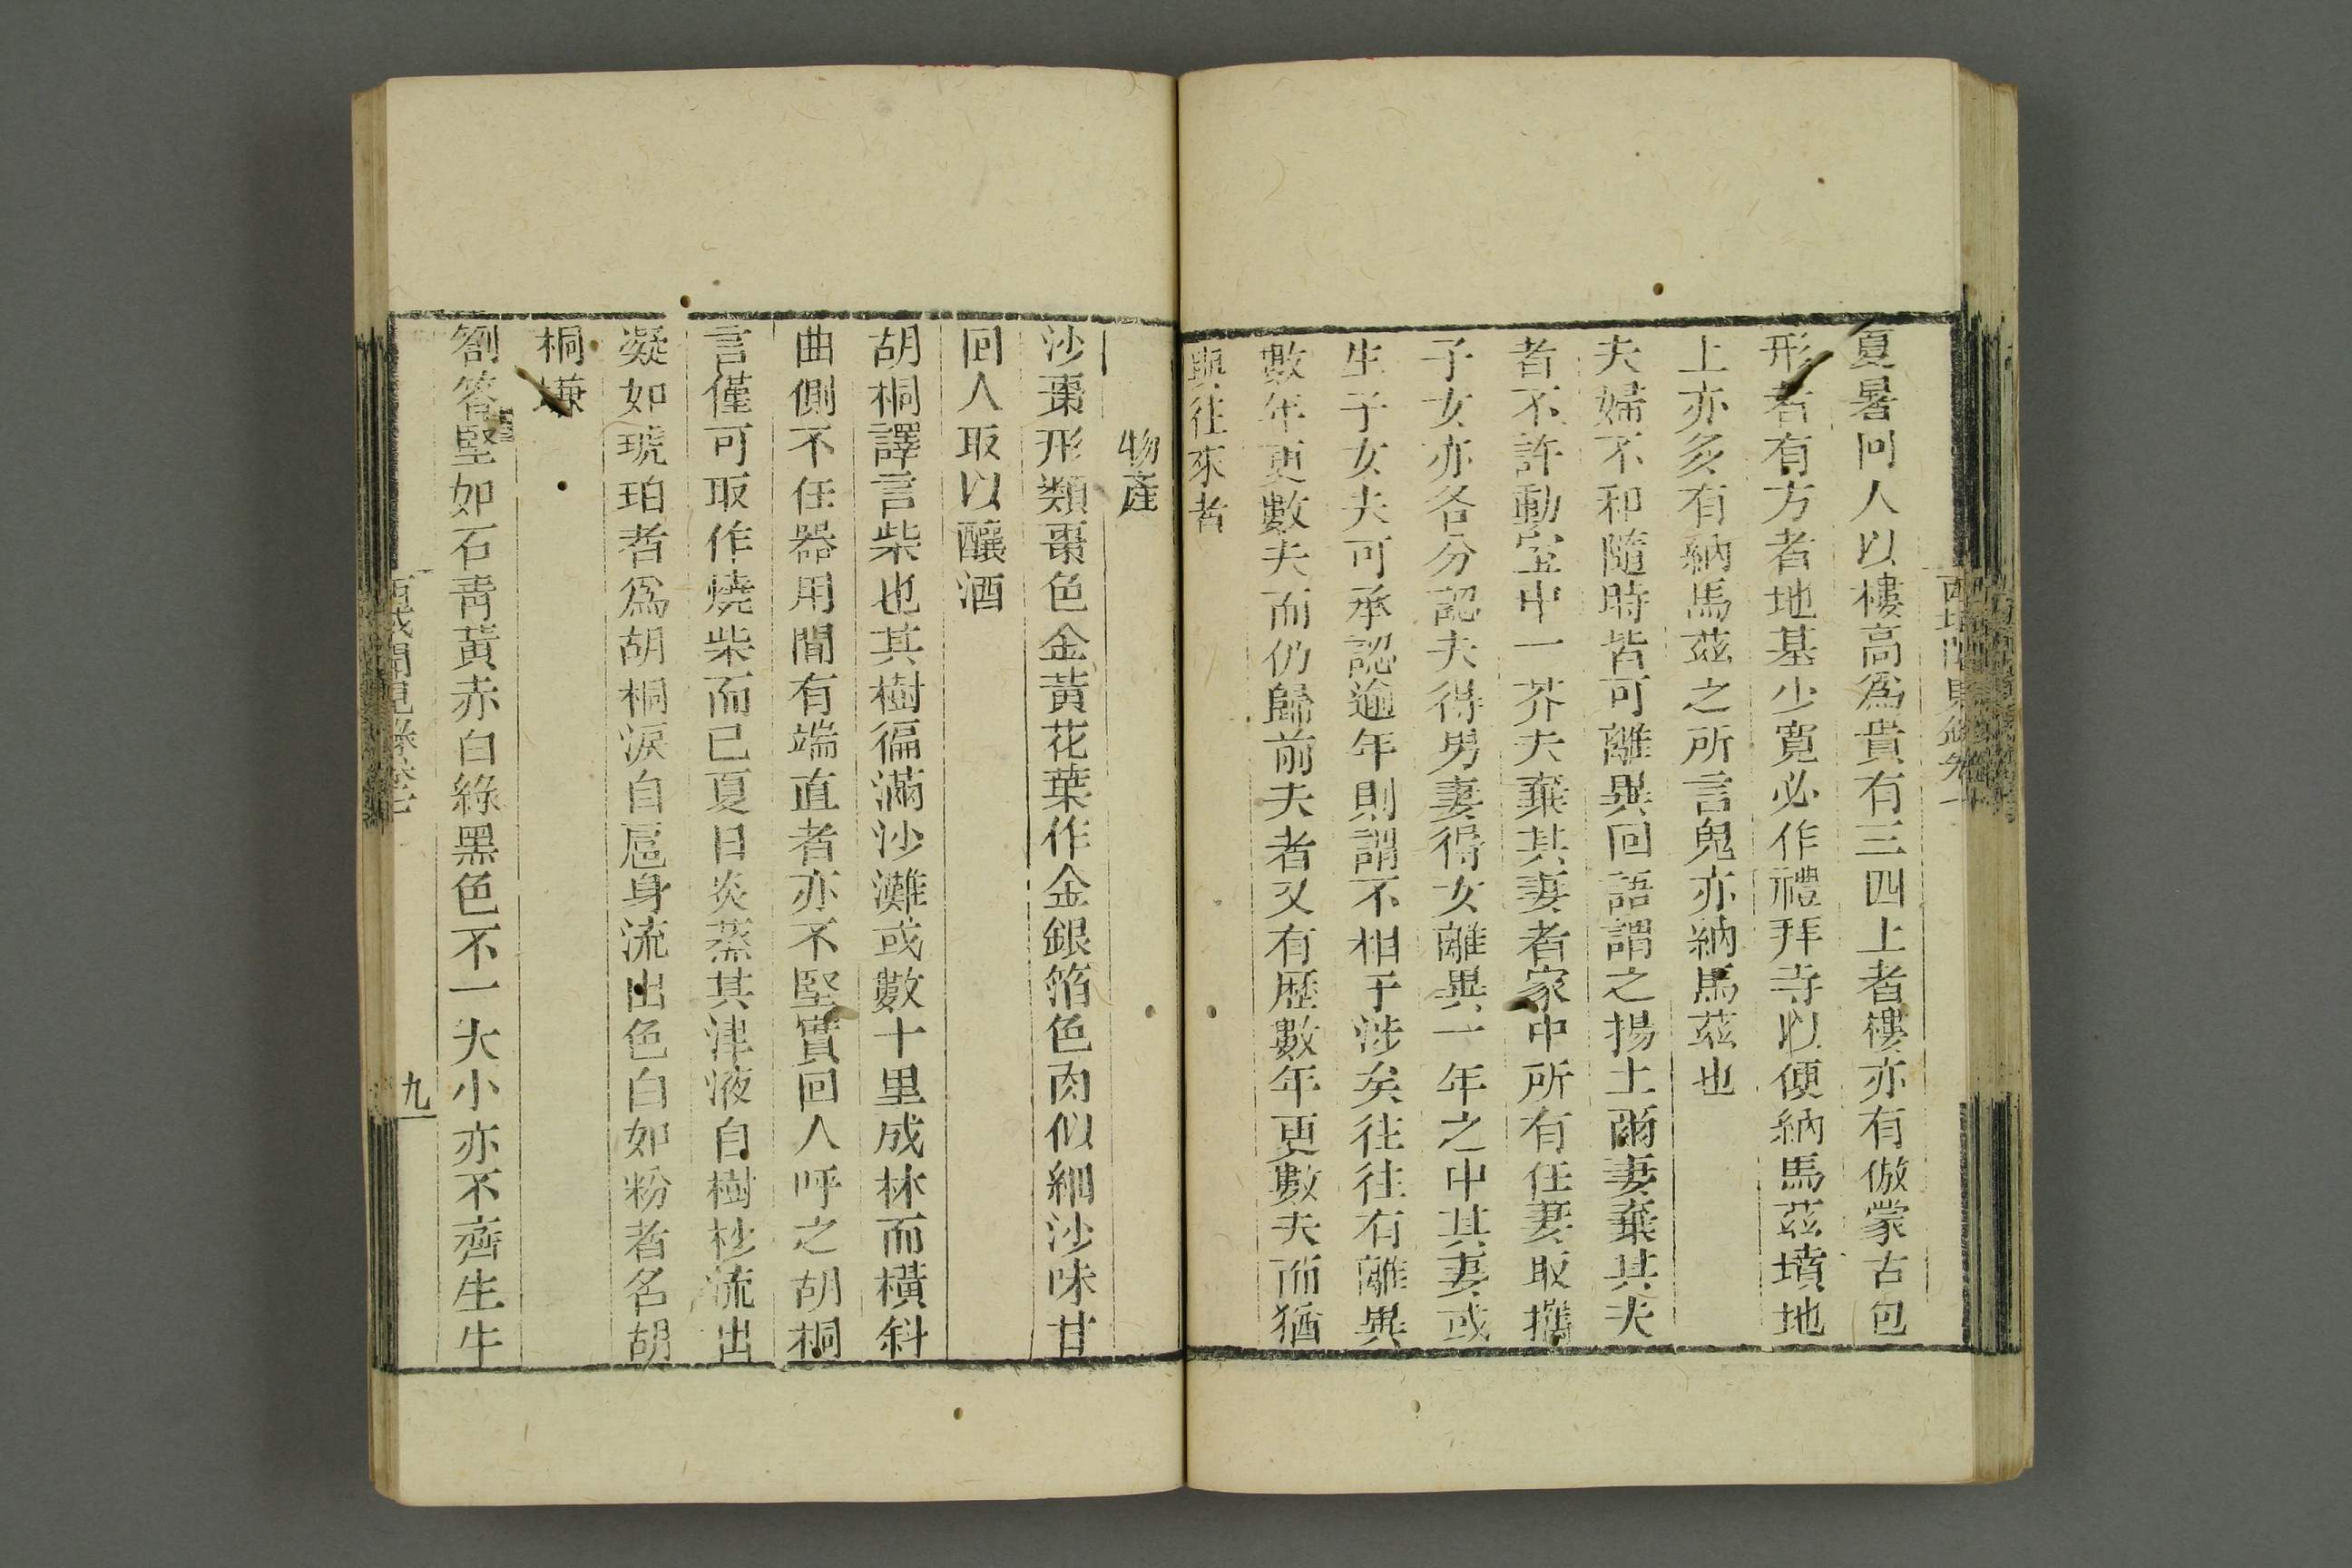 夏暑回人以樓高爲貴有三四上者樓亦有倣蒙古包
形者有方者地基少寬必作禮拜寺以便納馬茲墳地
上亦多有納馬茲之所言鬼亦納馬茲也
夫婦不和隨時皆可離異回語謂之揚土爾妻棄其夫
者不許動室中一芥夫棄其妻者家中所有任妻取攜
子女亦各分認夫得男妻得女離異一年之中其妻或
生子女夫可承認逾年則謂不相干涉矣往往有離異
數年更數夫而仍歸前夫者又有歷數年更數夫而猶
與往來者
物產
沙棗形類棗色金黃花葉作金銀箔色肉似細沙味甘
回人取以釀酒
胡桐譯言柴也其樹徧滿沙灘或數十里成林而橫斜
曲側不任器用間有端直者亦不堅實回人呼之胡桐
言僅可取作燒柴而已夏日炎蒸其津液自樹杪流出
凝如琥珀者爲胡桐淚自扂身流出色白如粉者名胡
桐
劄答堅如石靑黃赤白綠黑色不一大小亦不齊生牛
西域聞見錄卷七
九